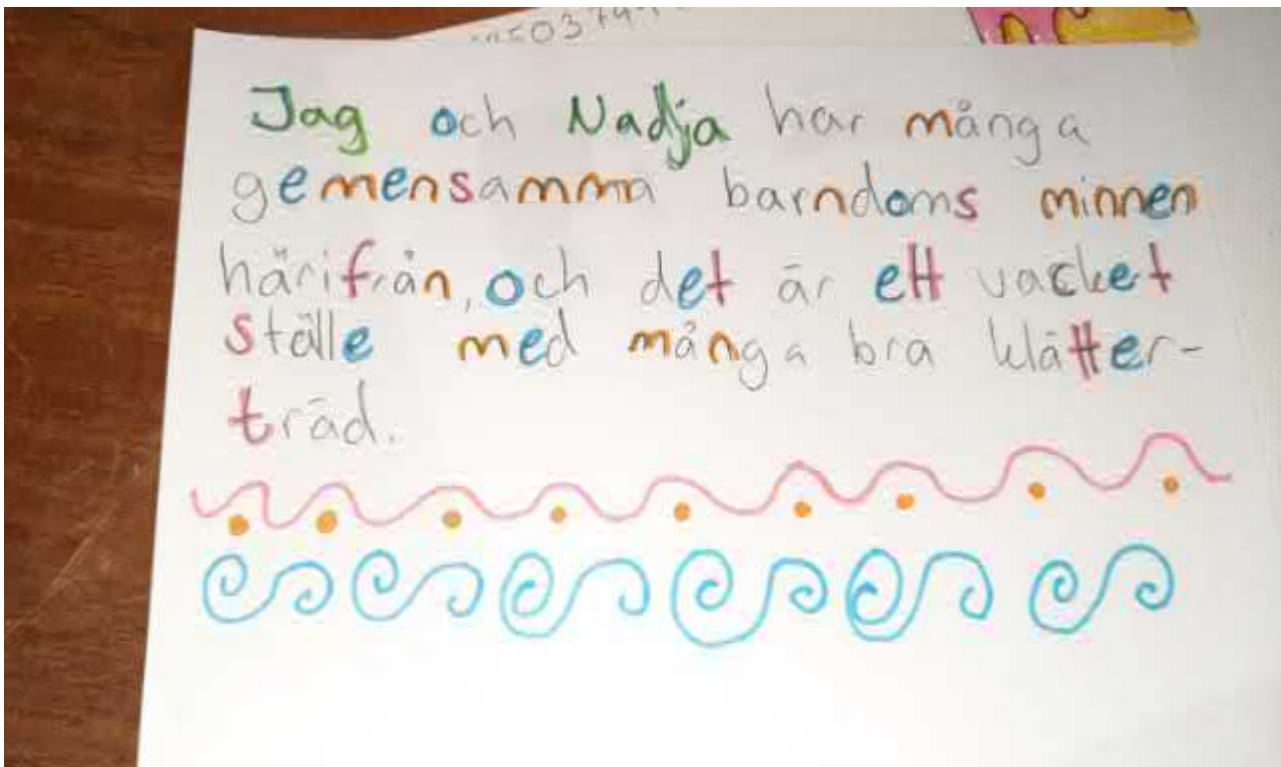 Jag och Nadja har många
gemensamma barndoms minnen
härifrån, och det är ett vackert
ställe med många bra klätter-
träd.